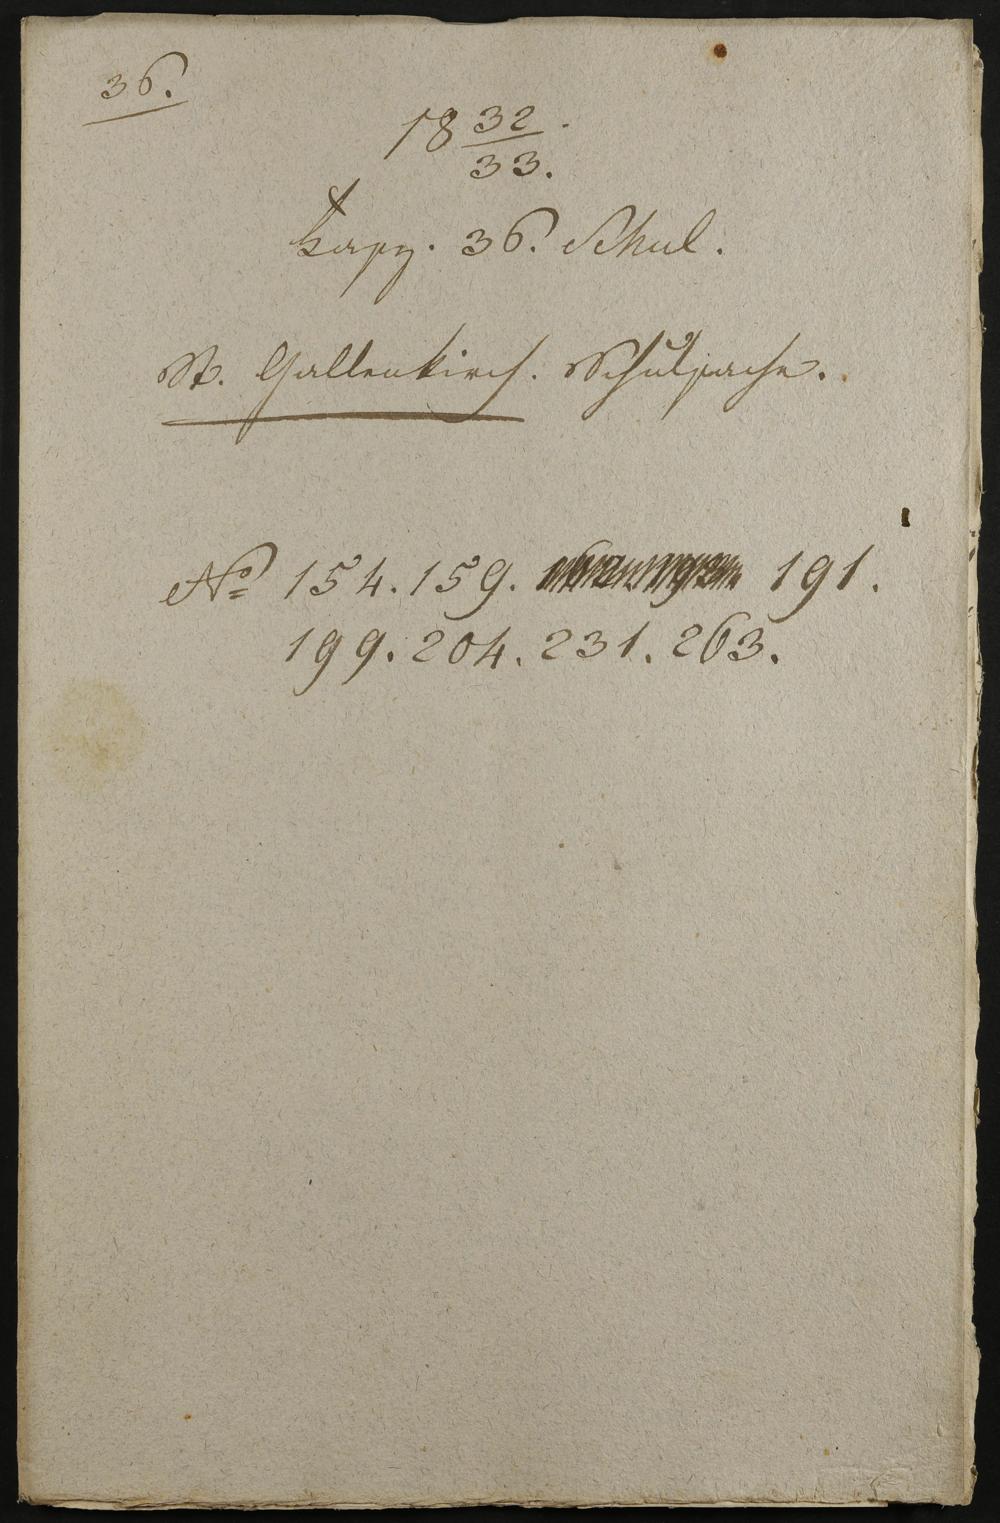 36.
18 32/33.
36. Schul.
St. Gallenkirch. Schulsache.
No 154. 159. 191.
199. 204. 231. 263.